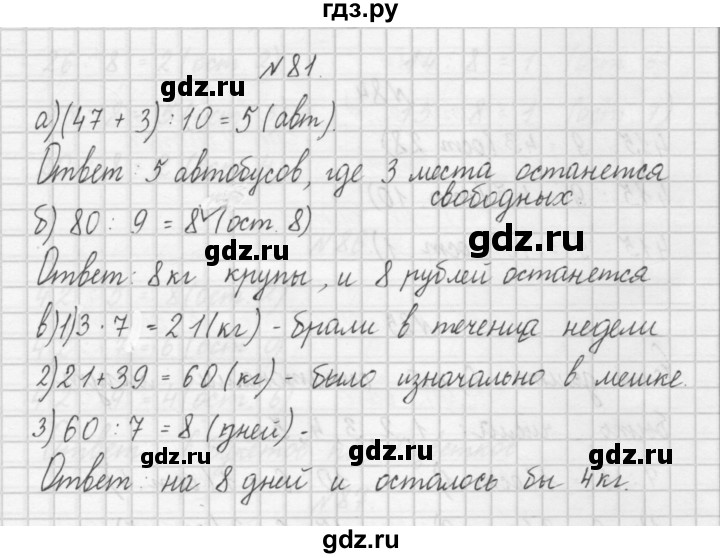 гдз.ру
№81.
gdz.ru gdz.ru
а)(47 + 3) : 10 = 5 (авт).
Ответ: 5 автобусов, где 3 места останется
свободных.
gdz.ru gdz.ru
б) 80 : 9 = 8 (ост. 8)
Ответ: 8кг крупы, и 8 рублей останется
gdz.ru gdz.ru
в)1)3 · 7 = 21(кг) - брали в течении недели
2)21 + 39 = 60 (кг) - было изначально в мешке.
gdz.ru gdz.ru
3) 60 : 7 = 8 (дней) -
gdz.ru gdz.ru
Ответ: на 8 дней и осталось бы 4кг.
gdz.ru